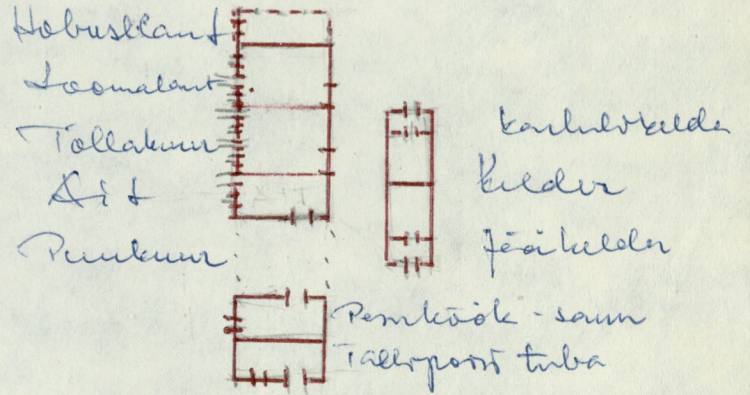 Hobusetall
Loomalaut
Tõllakuur
Ait
Puukuur
Kartulikelder
Kelder
Jääkelder
Pesuköök - saun
Tallipoisi tuba